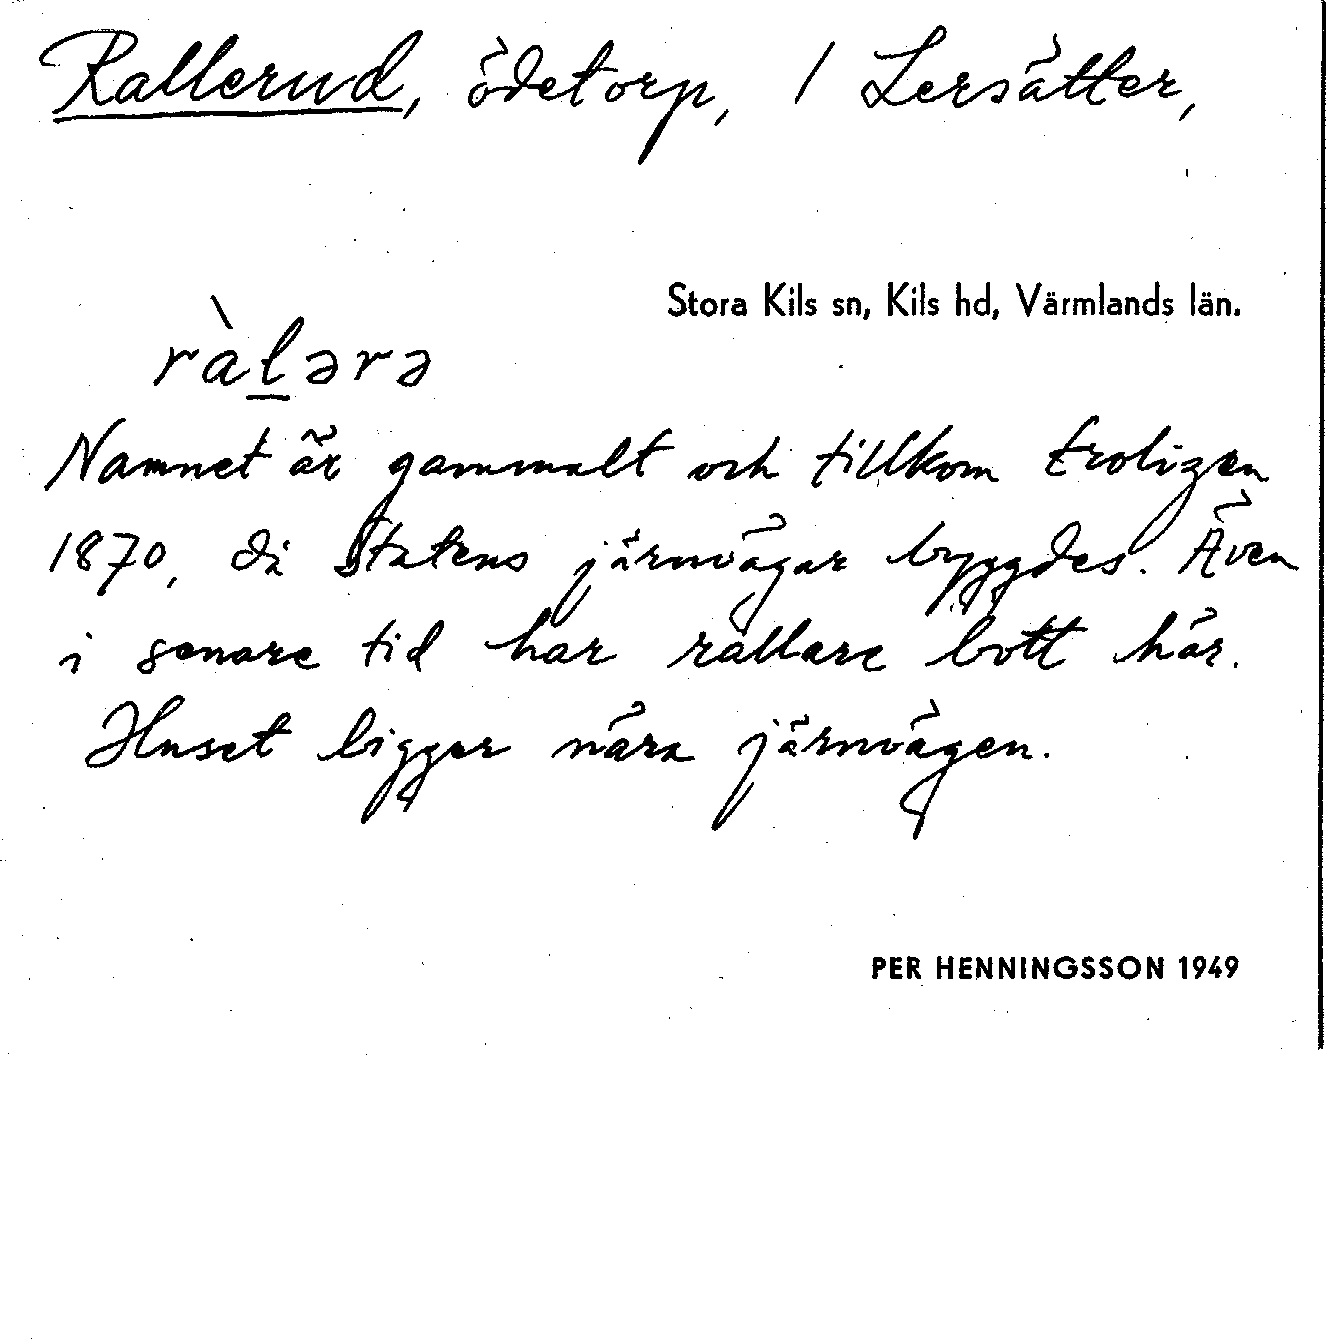 Rallerud, ödetorp, / Lersätter,
Stora Kils sn, Kils hd, Värmlands län.
ràl̲ərə
Namnet är gammalt och tillkom troligen
1870, då Statens järnvägar byggdes. Även
i senare tid har rallare bott här.
Huset ligger nära järnvägen.
PER HENNINGSSON 1949